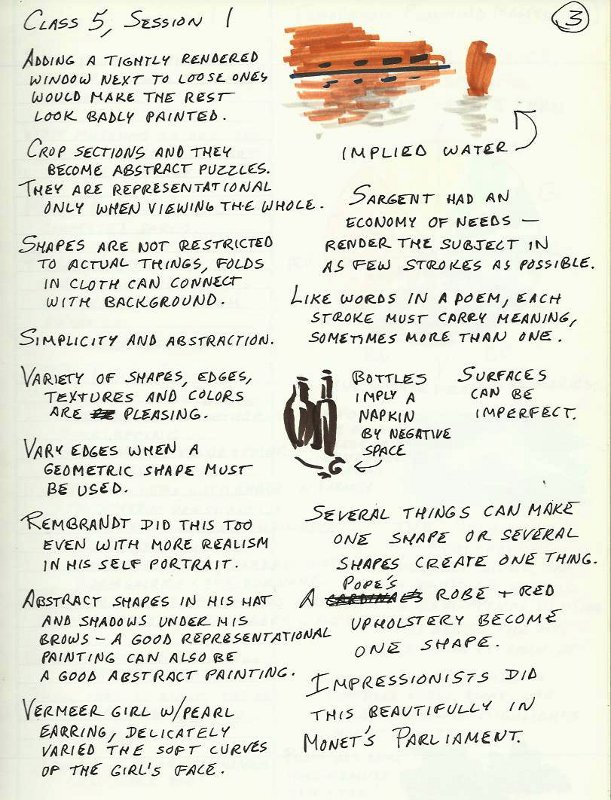 Class 5, Session 1
3
Adding a tightly rendered
window next to loose ones
would make the rest
look badly painted.
Crop sections and they
become abstract puzzles.
They are representational
only when viewing the whole.
Shapes are not restricted
to actual things, folds
in cloth can connect
with background.
Simplicity and abstraction.
Variety of shapes, edges,
textures and colors
are pleasing.
Vary edges when a
geometric shape must
be used.
Rembrandt did this too
even with more realism
in his self portrait.
Abstract shapes in his hat
and shadows under his
brows – a good representational
painting can also be
a good abstract painting.
Vermeer girl w/pearl
earring, delicately
varied the soft curves
of the girl's face.
implied water
Sargent had an
economy of needs –
render the subject in
as few strokes as possible.
Like words in a poem, each
stroke must carry meaning,
sometimes more than one.
Bottles
imply a
napkin
by negative
space
Surfaces
can be
imperfect.
Several things can make
one shape or several
shapes create one thing.
A Pope's robe + red
upholstery become
one shape.
Impressionists did
this beautifully in
Monet's Parliament.